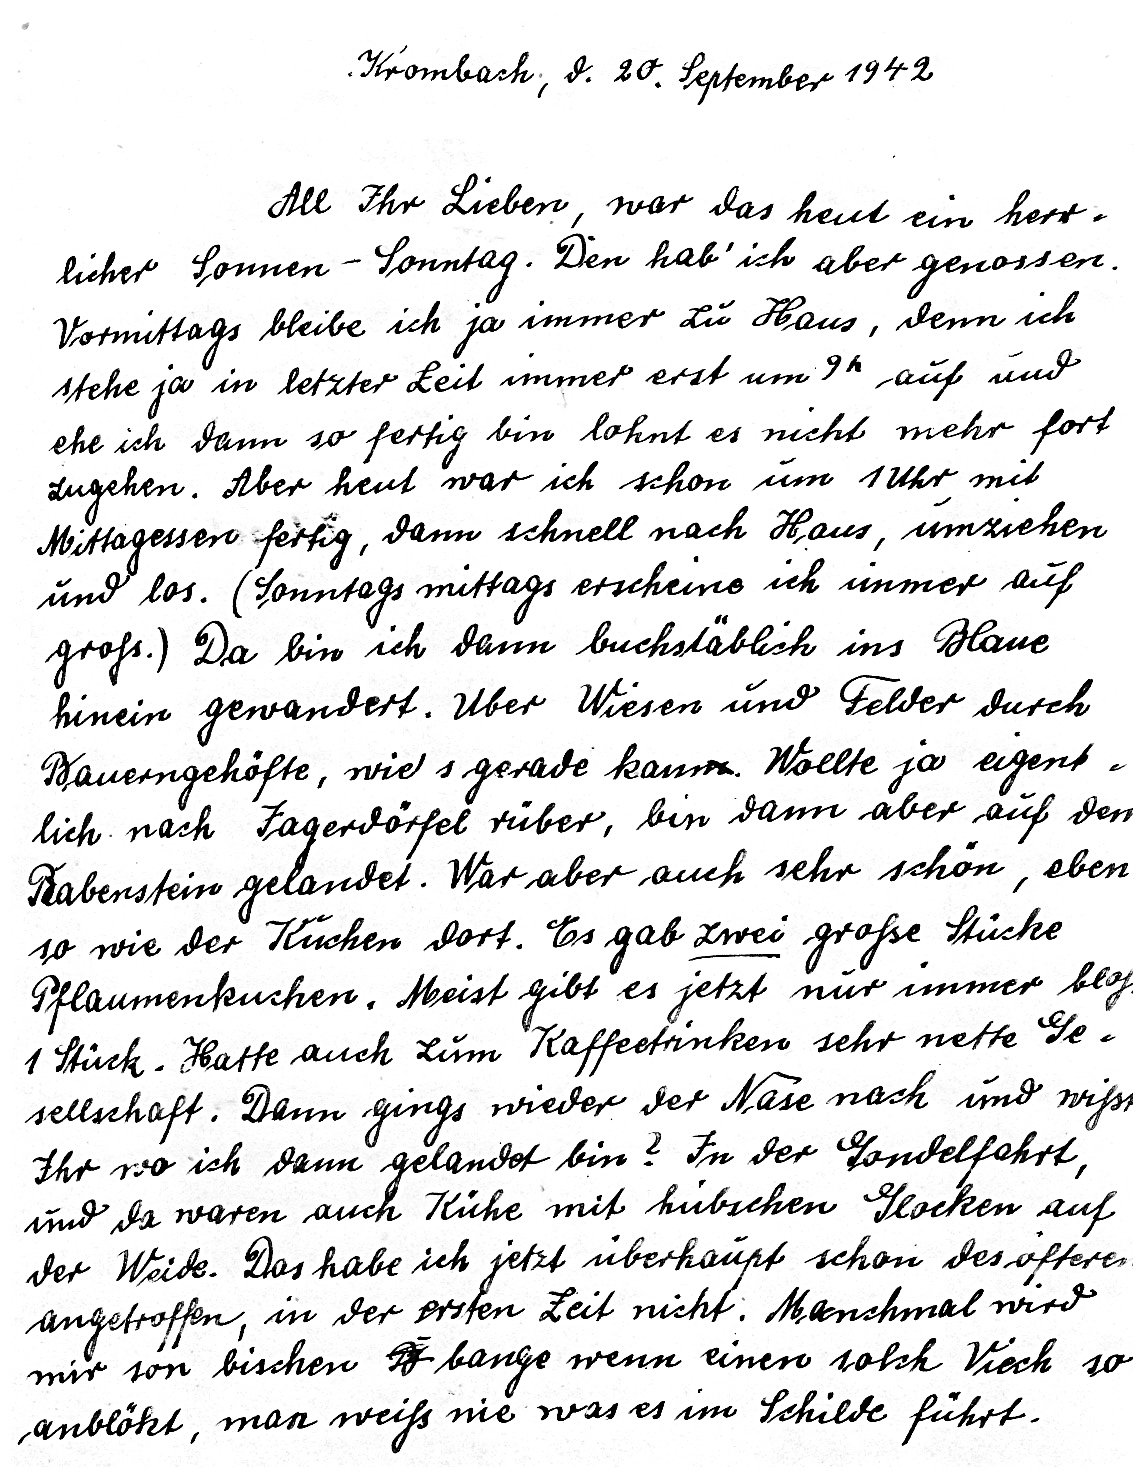 Krombach, d. 20. September 1942
All Ihr Lieben, war das heut ein herr-
licher Sonnen-Sonntag. Den hab' ich aber genossen.
Vormittags bleibe ich ja immer zu Haus, denn ich
stehe ja in letzter Zeit immer erst um 9h auf und
ehe ich dann so fertig bin lohnt es nicht mehr fort
zugehen. Aber heut war ich schon um 1 Uhr mit
Mittagessen fertig, dann schnell nach Haus, umziehen
und los. (Sonntags mittags erscheine ich immer auf
gross.) Da bin ich dann buchstäblich ins Blaue
hinein gewandert. Über Wiesen und Felder durch
Bauerngehöfte, wie s gerade kam. Wollte ja eigent-
lich nach Jagerdörfel rüber, bin dann aber auf dem
Rabenstein gelandet. War aber auch sehr schön, eben
so wie der Kuchen dort. Es gab zwei grosse Stücke
Pflaumenkuchen. Meist gibt es jetzt nur immer blos
1 Stück. Hatte auch zum Kaffeetrinken sehr nette Ge-
sellschaft. Dann gings wieder der Nase nach und wisst
Ihr wo ich dann gelandet bin? In der Gondelfahrt,
und da waren auch Kühe mit hübschen Glocken auf
der Weide. Das habe ich jetzt überhaupt schon des öfteren
angetroffen, in der ersten Zeit nicht. Manchmal wird
mir son bischen bange wenn einen solch Viech so
anblökt, man weiss nie was es im Schilde führt.